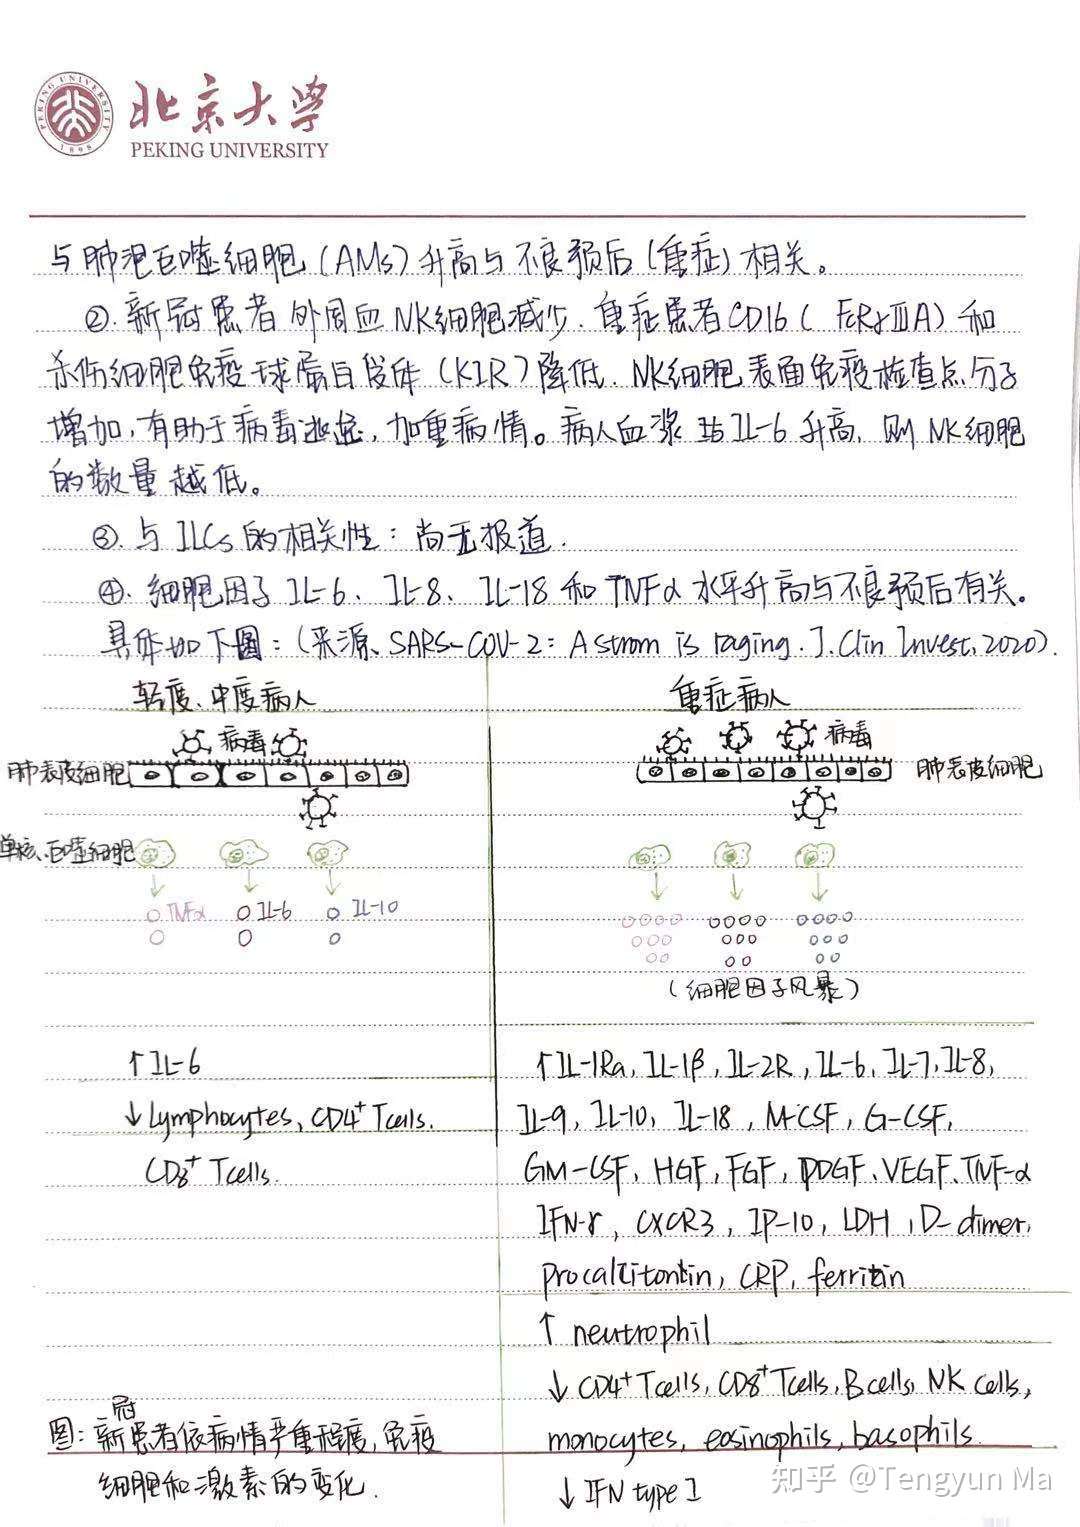 北京大学
PEKING UNIVERSITY
PEKING UNIVERSITY
1898
与肺泡巨噬细胞(AMs)升高与不良预后(重症)相关。
②. 新冠患者外周血NK细胞减少. 重症患者CD16( FcRγⅢA) 和
杀伤细胞免疫球蛋白受体(KIR)降低. NK细胞表面免疫检查点分子
增加,有助于病毒逃逸,加重病情。病人血浆 IL-6 升高, 则 NK细胞
的数量越低。
③. 与 ILCs 的相关性: 尚无报道.
④. 细胞因子 IL-6、IL-8、IL-18 和 TNFα 水平升高与不良预后有关。
具体如下图:(来源、SARS-COV-2: A strom is raging. J. Clin Invest, 2020).
轻度、中度病人
重症病人
病毒
病毒
肺表皮细胞
肺表皮细胞
单核、巨噬细胞
TNFα IL-6 IL-10
(细胞因子风暴)
↑ IL-6
↓ Lymphocytes, CD4⁺ Tcells.
CD8⁺ Tcells.
↑ IL-1Ra, IL-1β, IL-2R, IL-6, IL-7, IL-8,
IL-9, IL-10, IL-18, M-CSF, G-CSF,
GM-CSF, HGF, FGF, PDGF, VEGF, TNF-α
IFN-γ, CXCR3, IP-10, LDH, D-dimer,
procalcitontin, CRP, ferritin
↑ neutrophil
↓ CD4⁺ Tcells, CD8⁺ Tcells, B cells, NK cells,
monocytes, eosinophils, basophils.
↓ IFN type I
图: 新冠患者依病情严重程度, 免疫
细胞和激素的变化.
知乎 @Tengyun Ma